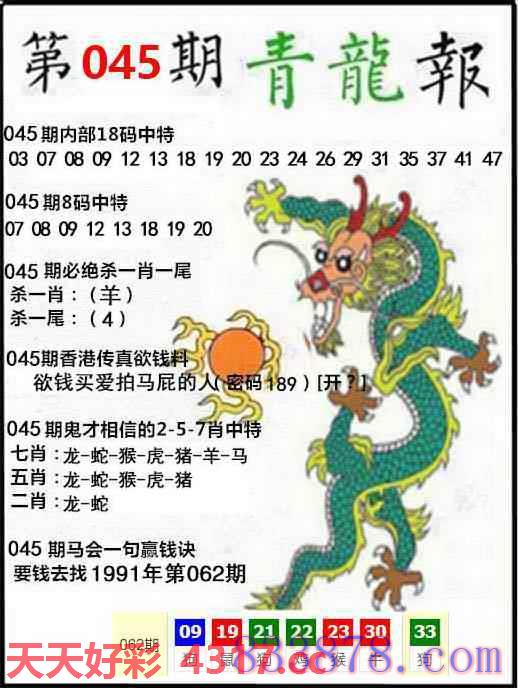 第045期青龍報
045期内部18码中特
03 07 08 09 12 13 18 19 20 23 24 26 29 31 35 37 41 47
045期8码中特
07 08 09 12 13 18 19 20
045 期必绝杀一肖一尾
杀一肖：（羊）
杀一尾：（4）
045期香港传真欲钱料
欲钱买爱拍马屁的人(密码189)[开？]
045期鬼才相信的2-5-7肖中特
七肖：龙-蛇-猴-虎-猪-羊-马
五肖：龙-蛇-猴-虎-猪
二肖：龙-蛇
045 期马会一句赢钱诀
要钱去找1991年第062期
062期 09 19 21 22 23 30 33
狗 鼠 狗 鸡 猴 牛 狗
天天好彩 4317.cc